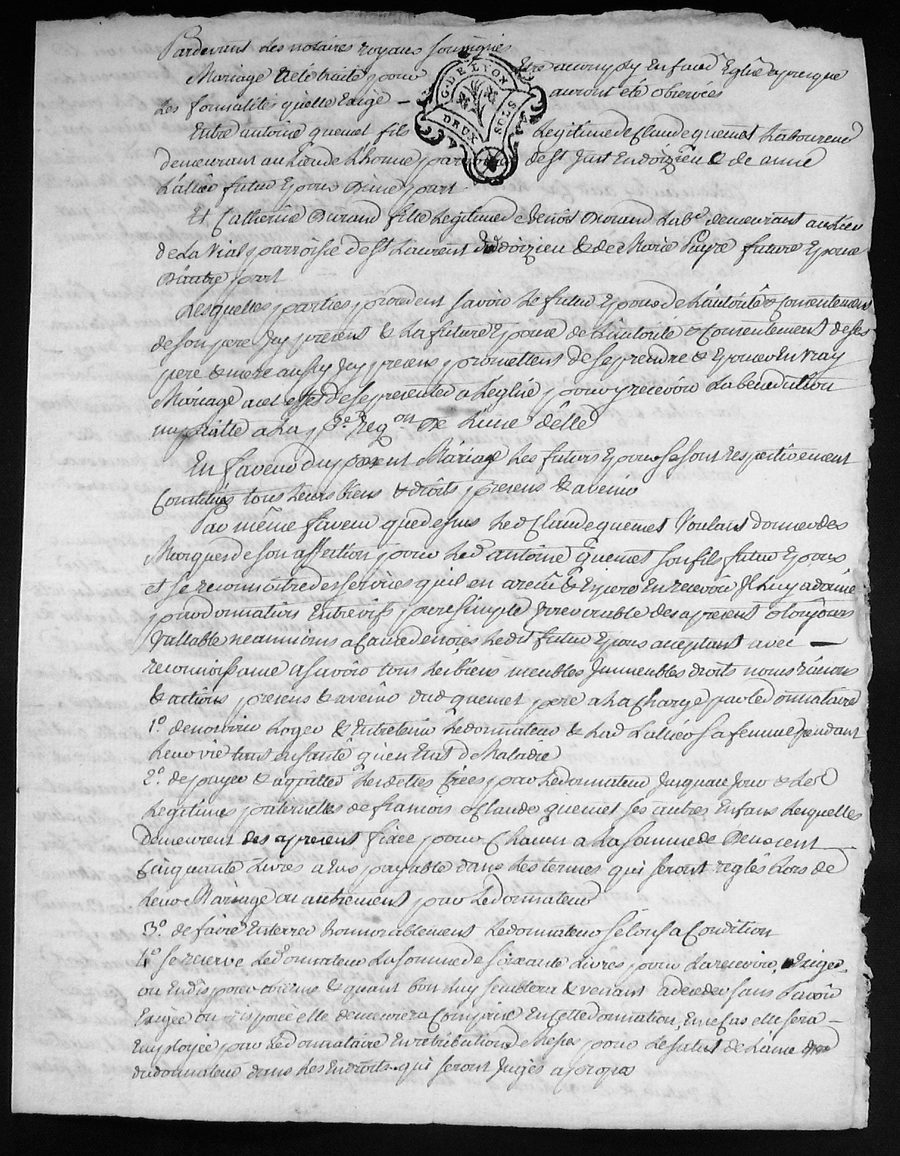 Pardevant les notaires royaux soussignés
Mariage a été traité pour Etre accomply En face d Eglise apres que
Les formalités quelle Exige — auront été observées
G. DE LYON
DEUX SOLS
Entre antoine quemet fils Legitime de Claude quemet Laboureur
demeurant au Lieu de Lhorme par de St Just Endoizieu & de anne
Lallier futur Epoux Dune part
Et Catherine Durand fille Legitime de Benoit Durand Labr demeurant au Lieu
de La Vial parroisse de St Laurent & de Marie Future Epouse
D'autre part
Lesquelles parties procedent savoir Le futur Epoux de L'autorité & Consentement
de son pere Icy present & La future Epouse de L'autorité & Consentement de ses
pere & mere aussy Icy presens promettent de se prendre & Epouser En vray
Mariage a cet effet de se presenter a Leglise pour y recevoir La benediction
nuptialle a La pre Reqon De Lune delles
En faveur du present Mariage Les futurs Epoux se sont respectivement
Constitués tous Leurs biens & droits presens & avenir
Par même faveur que dessus Led Claude quemet Voulant donner des
Marques de son affection pour Led antoine quemet son fils futur Epoux
et se reconnoitre des services quil en a recu & Espere En recevoir Il Luy a donné
par donnation Entrevifs pure simple Irrevocable des apresent & toujours
Vallable neanmoins a Cause de noces Ledit futur Epoux aceptant avec —
reconnoissance a savoir tous Les biens meubles Immeubles droits noms raisons
& actions presens & avenir dud quemet pere a La Charge par Le donnataire
1° de nourrir Loger & Entretenir Le donnateur & Lad Lallier sa femme pendant
Leur vie tant En santé qu'en Etat de Maladie
2° de payer & aquitter Les dettes Créés par Le donnateur Jusqua ce Jour & Les
Legitimes paternelles de francois & Claude quemet ses autres Enfans Lesquelles
demeurent des apresent fixées pour Chacun a La somme de Deux cent
Cinquante Livres a Eux payable dans Les termes qui seront reglés Lors de
Leur Mariage ou autrement par Le donnateur
3° de faire Enterrer honnorablement Le donnateur selon sa Condition
4° se reserve Le donnateur La somme de soixante Livres pour La recevoir, Exiger
ou En disposer comme & quant bon luy semblera & venant a deceder sans L'avoir
Exigée ou disposée elle demeurera Comprise En cette donnation, En ce Cas elle sera —
Employée par Le donnataire En retributions de Messes pour Le salut de L'ame
du donnateur dans Les Endroits qui seront Jugés a propos